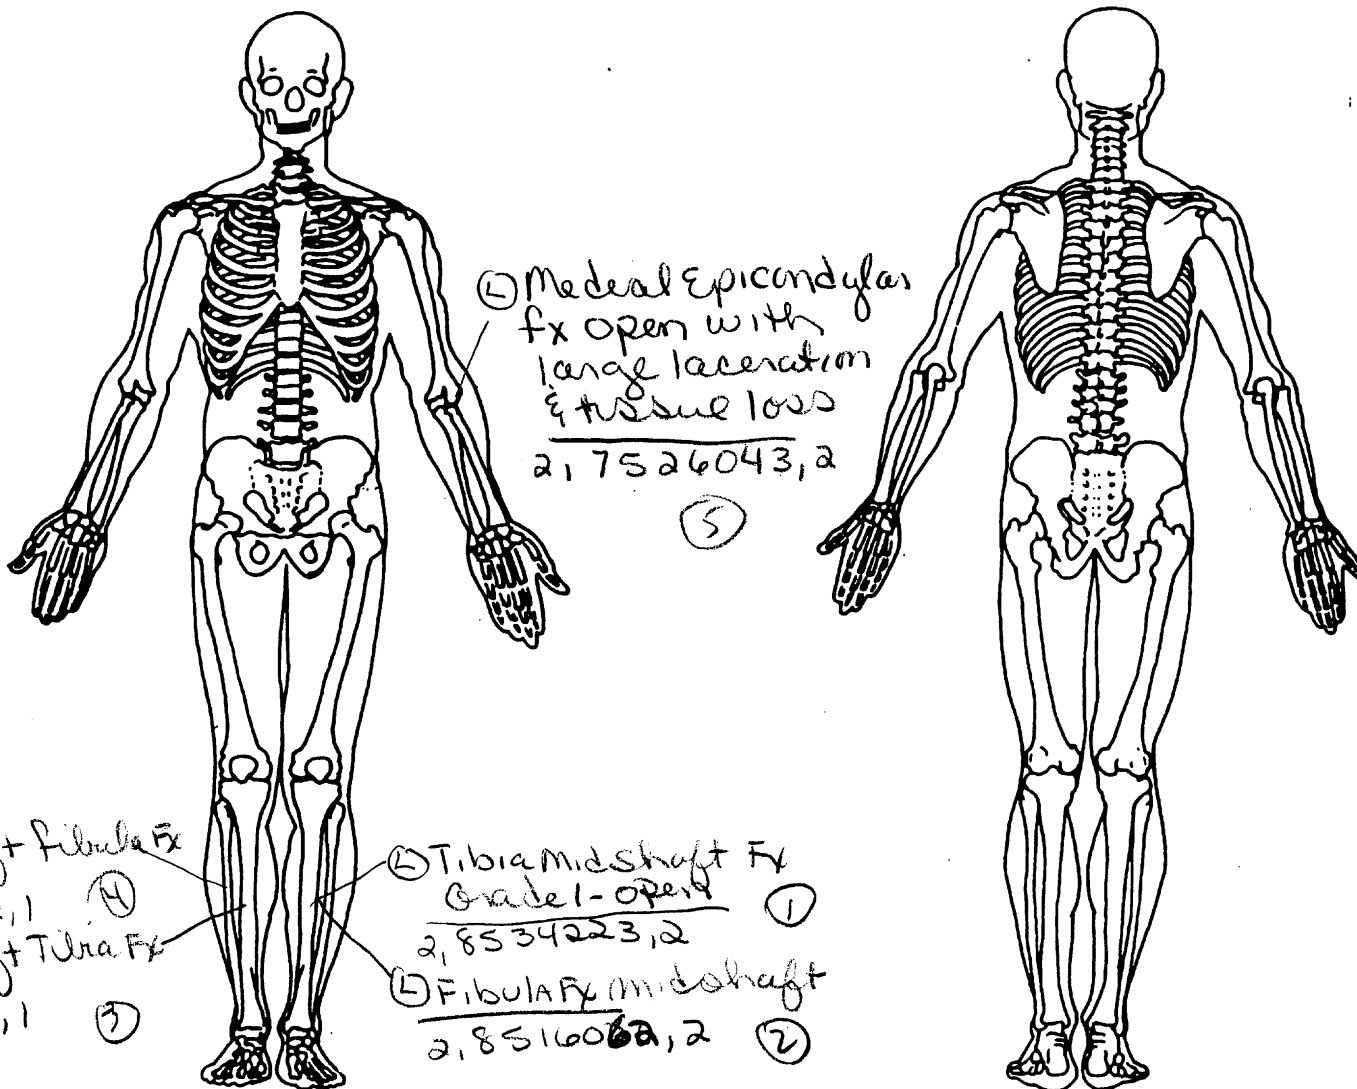 Ⓛ Medial Epicondylar
fx open with
large laceration
& tissue loss
2, 7526043, 2
⑤
+ fibula Fx
,1 ④
+ Tibia Fx
,1 ③
Ⓛ Tibia midshaft Fx
Grade 1-open ①
2, 8534223, 2
Ⓛ Fibula Fx midshaft
2, 85160, 2 ②